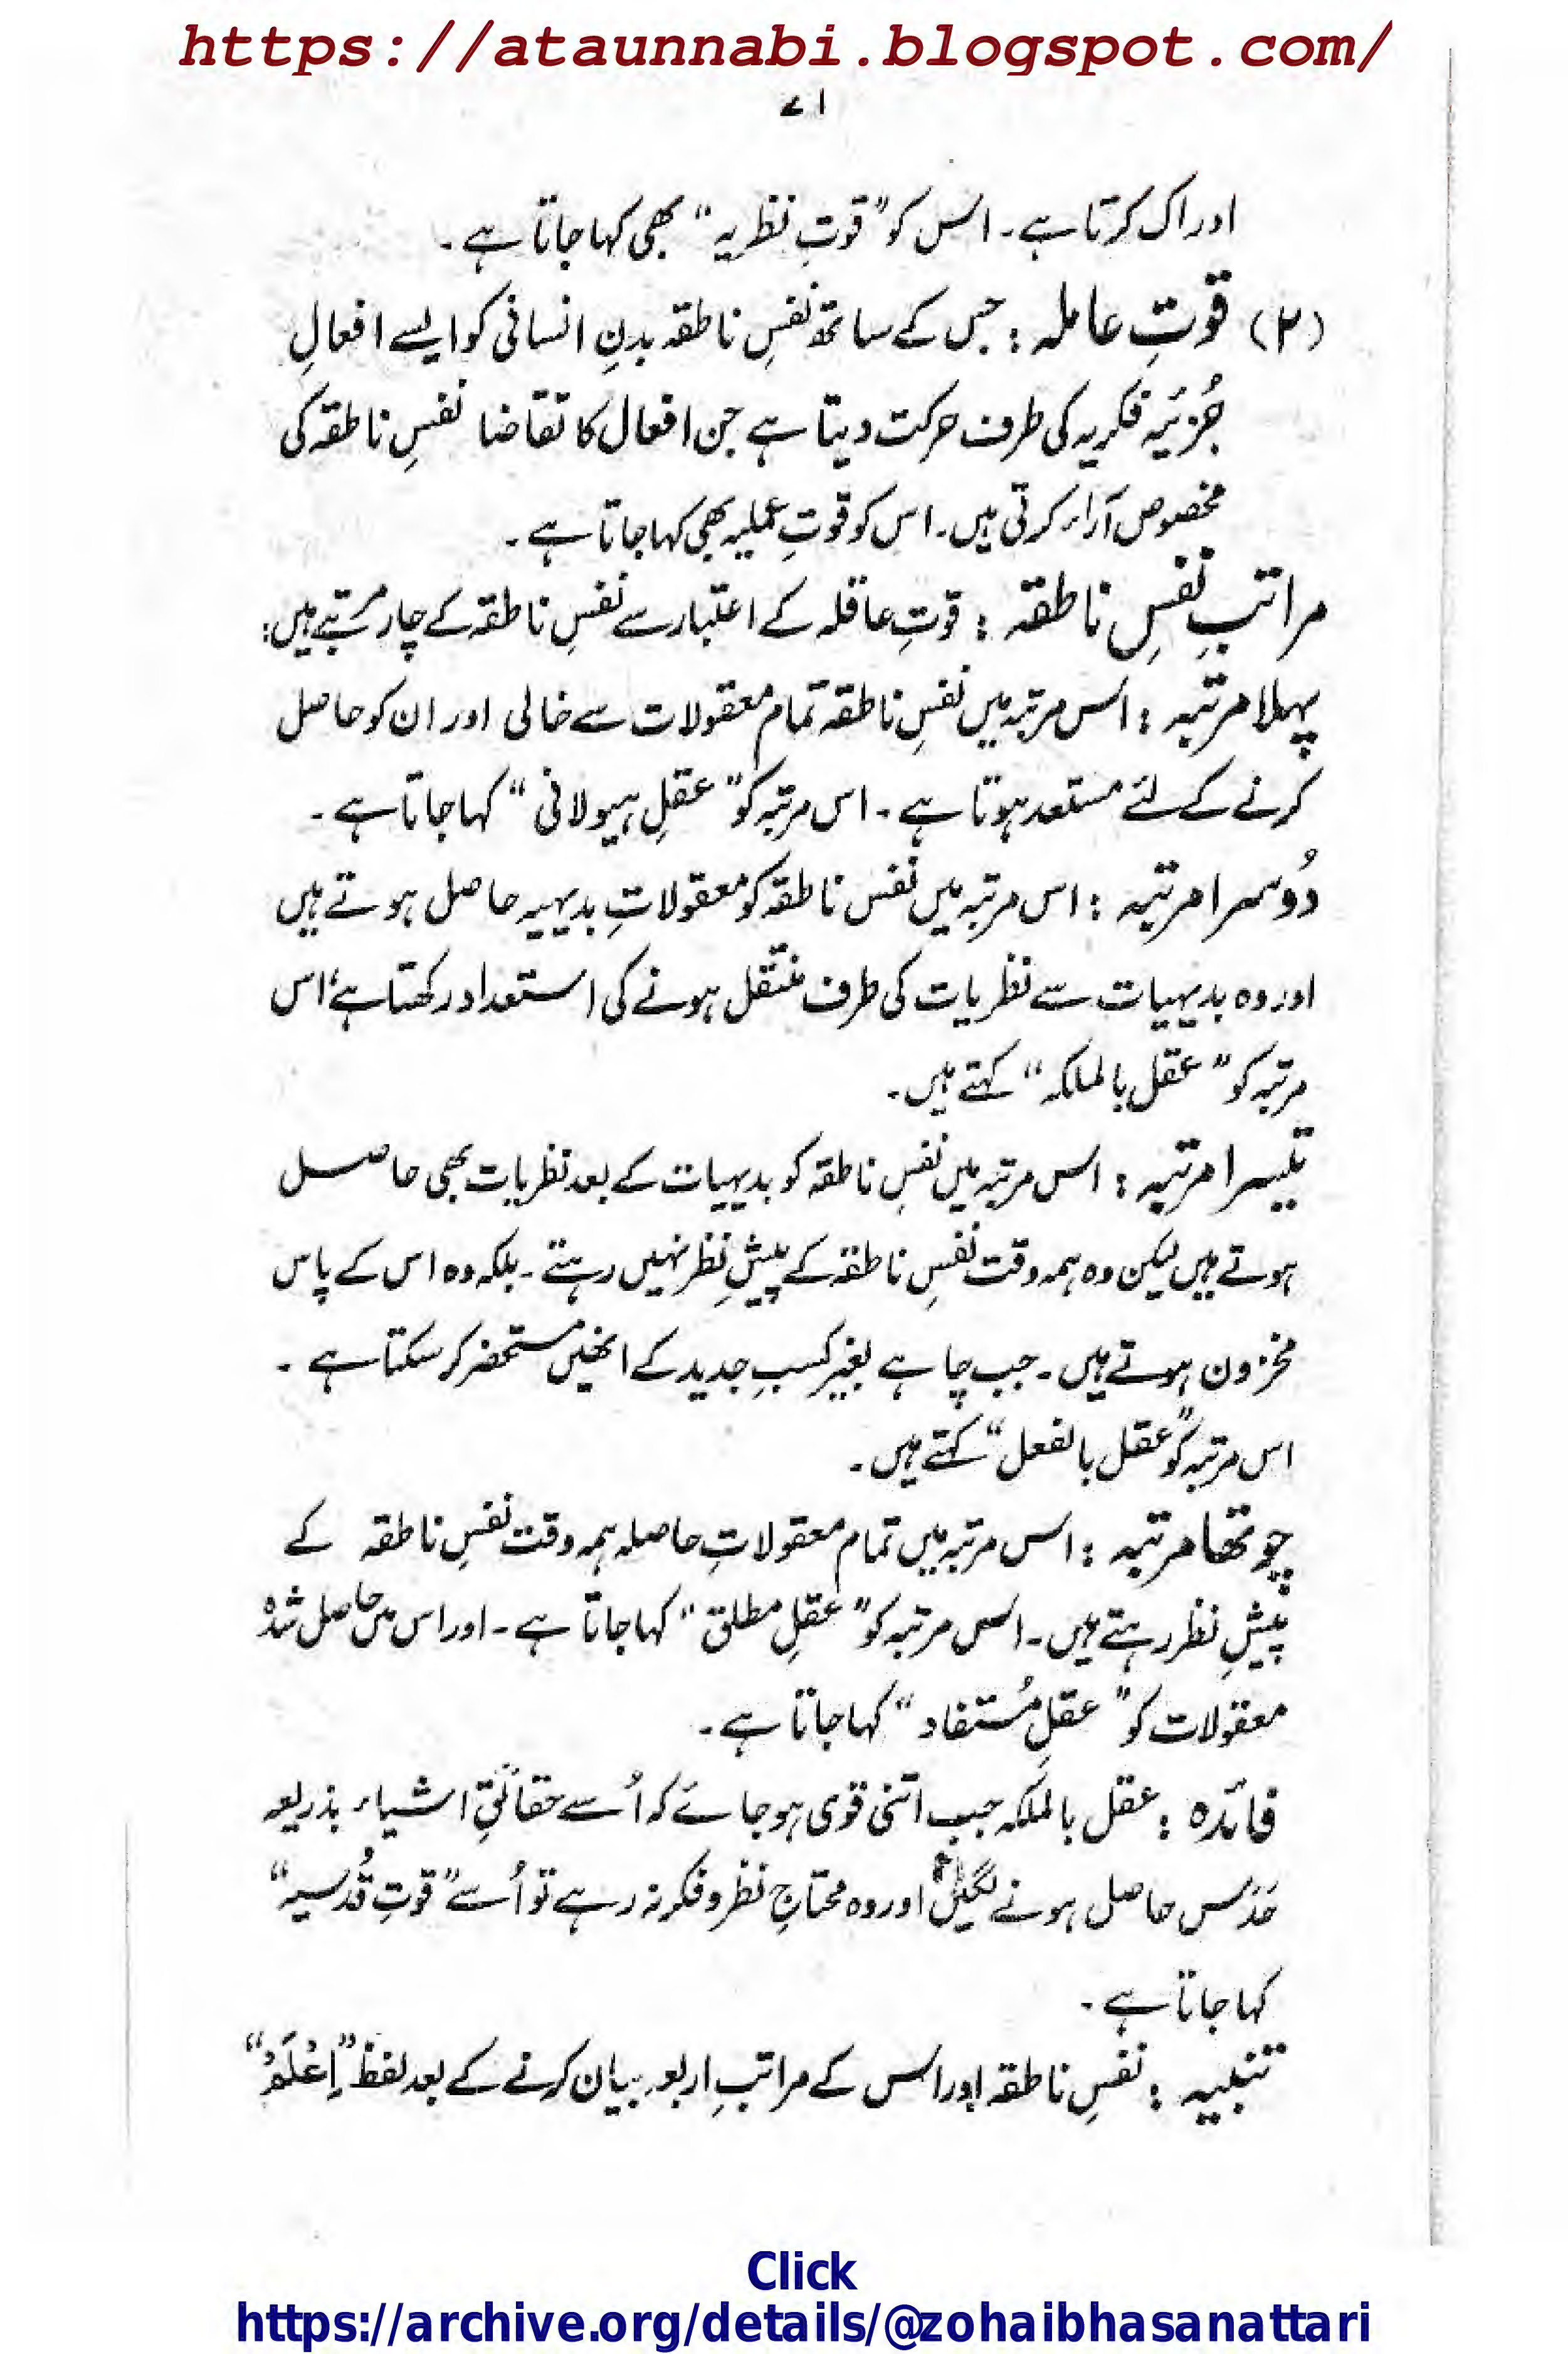 https://ataunnabi.blogspot.com/
۷۱
ادراک کرتا ہے۔ اس کو "قوتِ نظریہ" بھی کہا جاتا ہے۔
(۲) قوتِ عاملہ : جس کے ساتھ نفسِ ناطقہ بدنِ انسانی کو ایسے افعالِ
جُزئیہ فکریہ کی طرف حرکت دیتا ہے جن افعال کا تقاضا نفسِ ناطقہ کی
مخصوص آراء کرتی ہیں۔ اس کو قوتِ عملیہ بھی کہا جاتا ہے۔
مراتبِ نفسِ ناطقہ : قوتِ عاقلہ کے اعتبار سے نفسِ ناطقہ کے چار مرتبے ہیں:
پہلا مرتبہ : اس مرتبہ میں نفسِ ناطقہ تمام معقولات سے خالی اور ان کو حاصل
کرنے کے لئے مستعد ہوتا ہے۔ اس مرتبہ کو "عقلِ ہیولانی" کہا جاتا ہے۔
دُوسرا مرتبہ : اس مرتبہ میں نفس ناطقہ کو معقولاتِ بدیہیہ حاصل ہوتے ہیں
اور وہ بدیہیات سے نظریات کی طرف منتقل ہونے کی استعداد رکھتا ہے، اس
مرتبہ کو "عقل بالملکہ" کہتے ہیں۔
تیسرا مرتبہ : اس مرتبہ میں نفسِ ناطقہ کو بدیہیات کے بعد نظریات بھی حاصل
ہوتے ہیں لیکن وہ ہمہ وقت نفسِ ناطقہ کے پیشِ نظر نہیں رہتے۔ بلکہ وہ اس کے پاس
مخزون ہوتے ہیں۔ جب چاہے بغیر کسبِ جدید کے انھیں مستحضر کرسکتا ہے۔
اس مرتبہ کو "عقل بالفعل" کہتے ہیں۔
چوتھا مرتبہ : اس مرتبہ میں تمام معقولاتِ حاصلہ ہمہ وقت نفسِ ناطقہ کے
پیشِ نظر رہتے ہیں۔ اس مرتبہ کو "عقلِ مطلق" کہا جاتا ہے۔ اور اس میں حاصل شدہ
معقولات کو "عقلِ مُستفاد" کہا جاتا ہے۔
فائدہ : عقل بالملکہ جب اتنی قوی ہو جائے کہ اُسے حقائقِ اشیاء بذریعہ
حَدْس حاصل ہونے لگیں اور وہ محتاجِ نظر و فکر نہ رہے تو اُسے "قوتِ قُدسیہ"
کہا جاتا ہے۔
تنبیہ : نفسِ ناطقہ اور اس کے مراتبِ اربعہ بیان کرنے کے بعد لفظ "اِعْلَمْ"
Click
https://archive.org/details/@zohaibhasanattari